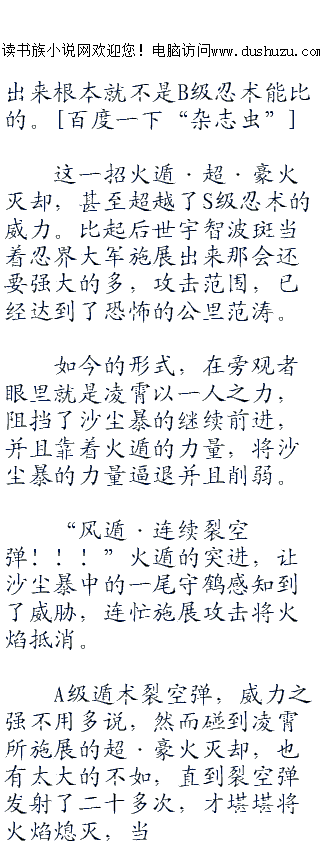 读书族小说网欢迎您！电脑访问www.dushuzu.com
出来根本就不是B级忍术能比
的。[百度一下“杂志虫”]
这一招火遁·超·豪火
灭却，甚至超越了S级忍术的
威力。比起后世宇智波斑当
着忍界大军施展出来那会还
要强大的多，攻击范围，已
经达到了恐怖的公里范涛。
如今的形式，在旁观者
眼里就是凌霄以一人之力，
阻挡了沙尘暴的继续前进，
并且靠着火遁的力量，将沙
尘暴的力量逼退并且削弱。
“风遁·连续裂空
弹！！！”火遁的突进，让
沙尘暴中的一尾守鹤感知到
了威胁，连忙施展攻击将火
焰抵消。
A级遁术裂空弹，威力之
强不用多说，然而碰到凌霄
所施展的超·豪火灭却，也
有太大的不如，直到裂空弹
发射了二十多次，才堪堪将
火焰熄灭，当